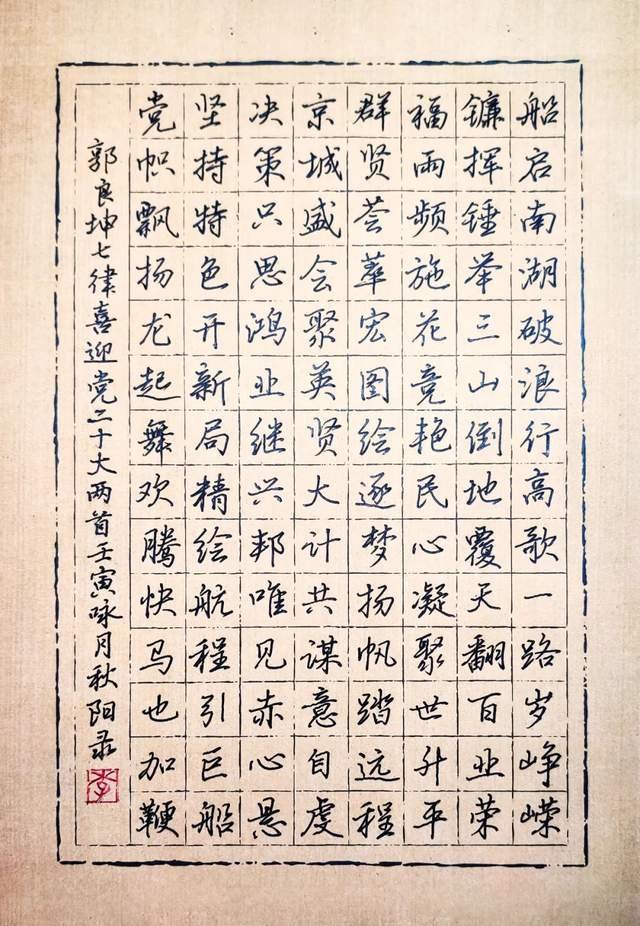 船启南湖破浪行高歌一路岁峥嵘
镰挥锤举三山倒地覆天翻百业荣
福雨频施花竞艳民心凝聚世升平
群贤荟萃宏图绘逐梦扬帆踏远程
京城盛会聚英贤大计共谋意自虔
决策只思鸿业继兴邦唯见赤心悬
坚持特色开新局精绘航程引巨船
党帜飘扬龙起舞欢腾快马也加鞭
郭良坤七律喜迎党二十大两首壬寅咏月秋阳录
李